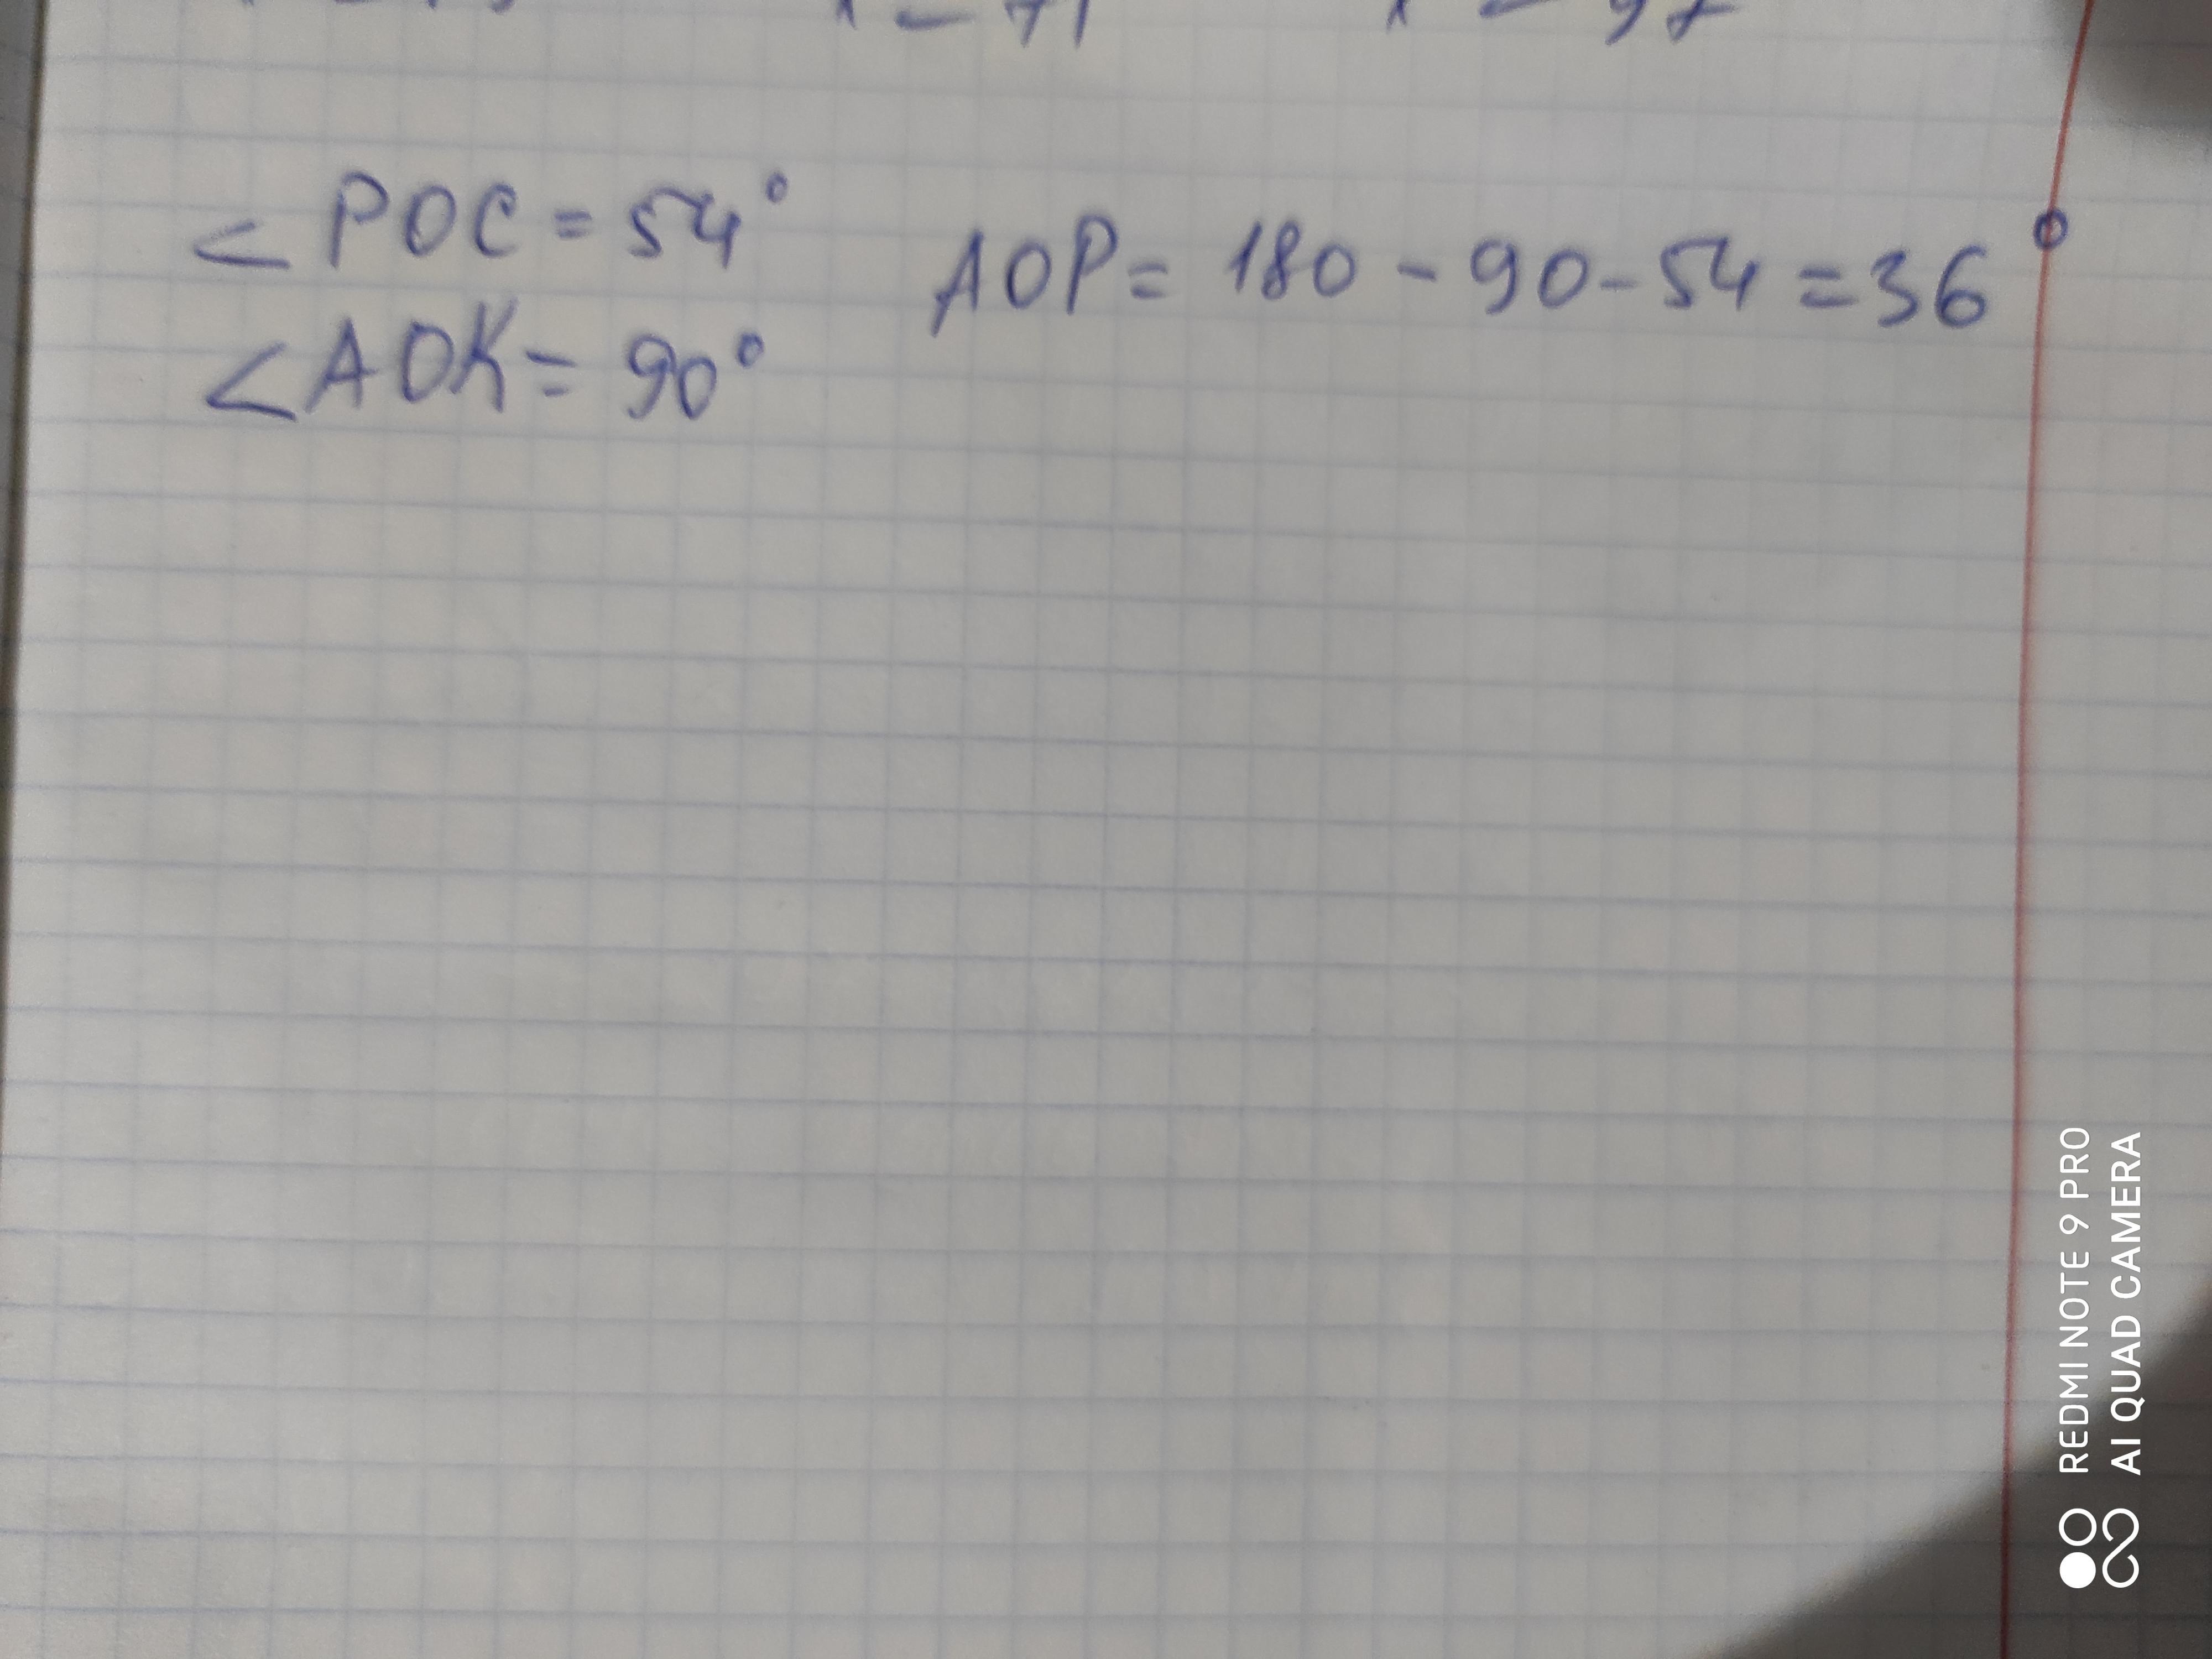 < POC = 54°
< AOK = 90°
AOP = 180 - 90 - 54 = 36°
REDMI NOTE 9 PRO
AI QUAD CAMERA